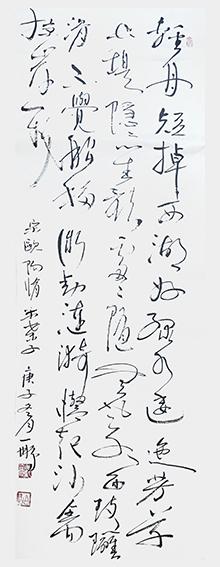 輕舟短棹西湖好綠水逶迤芳草
長堤隱隱笙歌處處隨無風水面琉璃
滑不覺船移微動漣漪驚起沙禽
掠岸飛
宋歐陽脩采桑子庚子夏月一